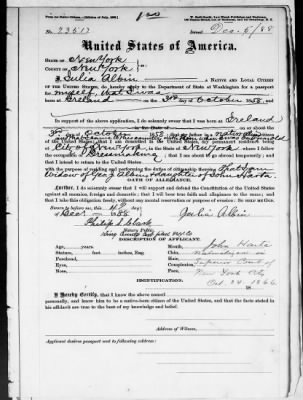 No. 23617
Issued Dec. 5/88
United States of America.
STATE OF New York
COUNTY OF New York
I, Julia Albin, A NATIVE AND LOYAL CITIZEN
OF THE UNITED STATES, do hereby apply to the Department of State at Washington for a passport
for myself, that I was
born at Ireland on the 3rd day of October 1858.
In support of the above application, I do solemnly swear that I was born at Ireland
on the State of
3rd October 1858,
City of New York New York where I follow
the occupation of Dressmaking; that I am about to go abroad temporarily; and
that I intend to return to the United States
with the purpose of residing and performing the duties of citizenship therein; that I am
widow of Albin, daughter of John
OATH OF ALLEGIANCE.
Further, I do solemnly swear that I will support and defend the Constitution of the United States
against all enemies, foreign and domestic; that I will bear true faith and allegiance to the same; and
that I take this obligation freely, without any mental reservation or purpose of evasion: So help me God.
Sworn to before me, this 4th day
of Dec. 1888 Julia Albin
Philip S. Clark
Notary Public
DESCRIPTION OF APPLICANT.
Age, years. Mouth,
Stature, feet inches, Eng. Chin,
Forehead, Hair,
Eyes, Complexion,
Nose, Face,
John
Superior Court of
New York City
Oct. 24 1866
IDENTIFICATION.
I hereby certify, that I know the above named
personally, and know to be a native-born citizen of the United States, and that the facts stated in
his affidavit are true to the best of my knowledge and belief.
Address of Witness,
Applicant desires passport sent to following address: